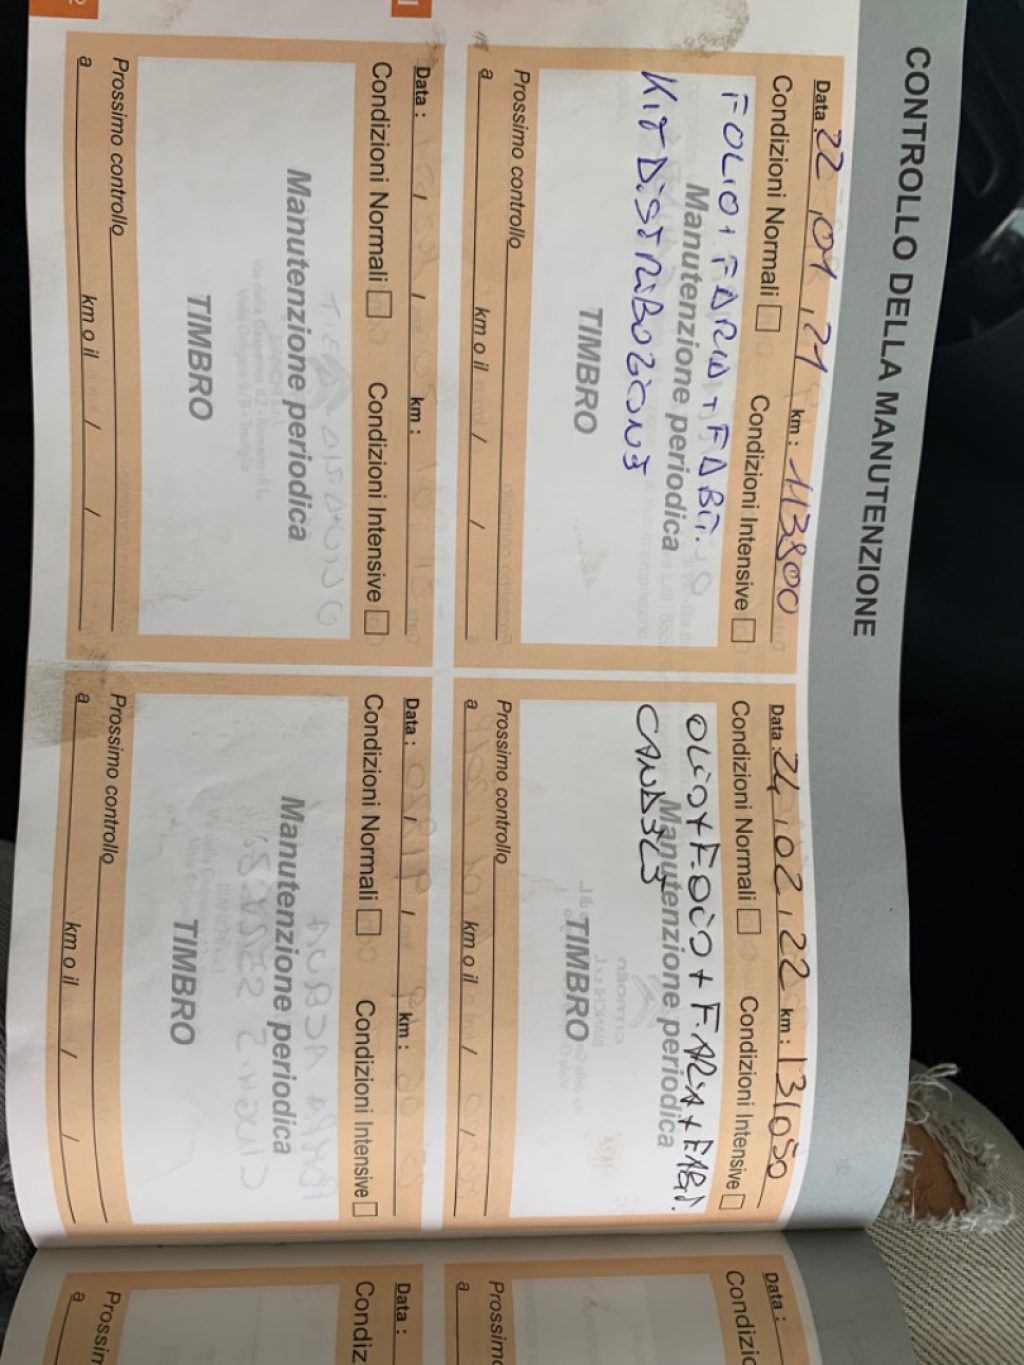 CONTROLLO DELLA MANUTENZIONE
Data : 22 , 01 , 21 km : 113800
Condizioni Normali Condizioni Intensive
FOLIO + FARIA + FABIT.
KIT DiSTRiBUZiONE
Manutenzione periodica
TIMBRO
Prossimo controllo
a km o il / /
Data : 24 , 02 , 22 km : 131050
Condizioni Normali Condizioni Intensive
OLiO + F.OliO + F.ARIA + F.ABiT.
CANDELE
Manutenzione periodica
TIMBRO
Prossimo controllo
a km o il / /
Data : / / km :
Condizioni Normali Condizioni Intensive
Manutenzione periodica
TIMBRO
Prossimo controllo
a km o il / /
Data : / / km :
Condizioni Normali Condizioni Intensive
Manutenzione periodica
TIMBRO
Prossimo controllo
a km o il / /
Data :
Condizio
Prossimo
a
Data :
Condiz
Prossim
a